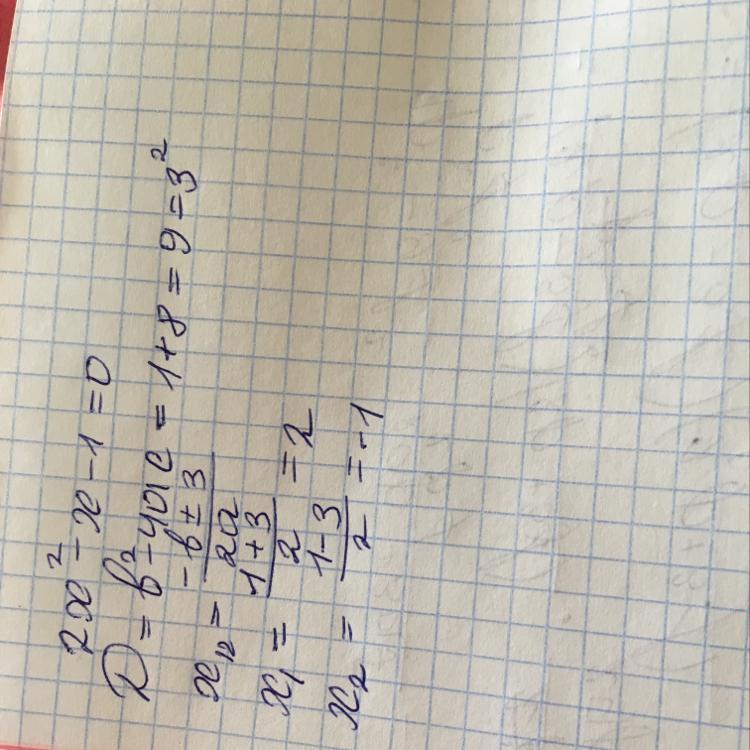 2x² - x - 1 = 0
D = b² - 4ac = 1 + 8 = 9 = 3²
x₁₂ = (-b ± 3) / 2a
x₁ = (1 + 3) / 2 = 2
x₂ = (1 - 3) / 2 = -1